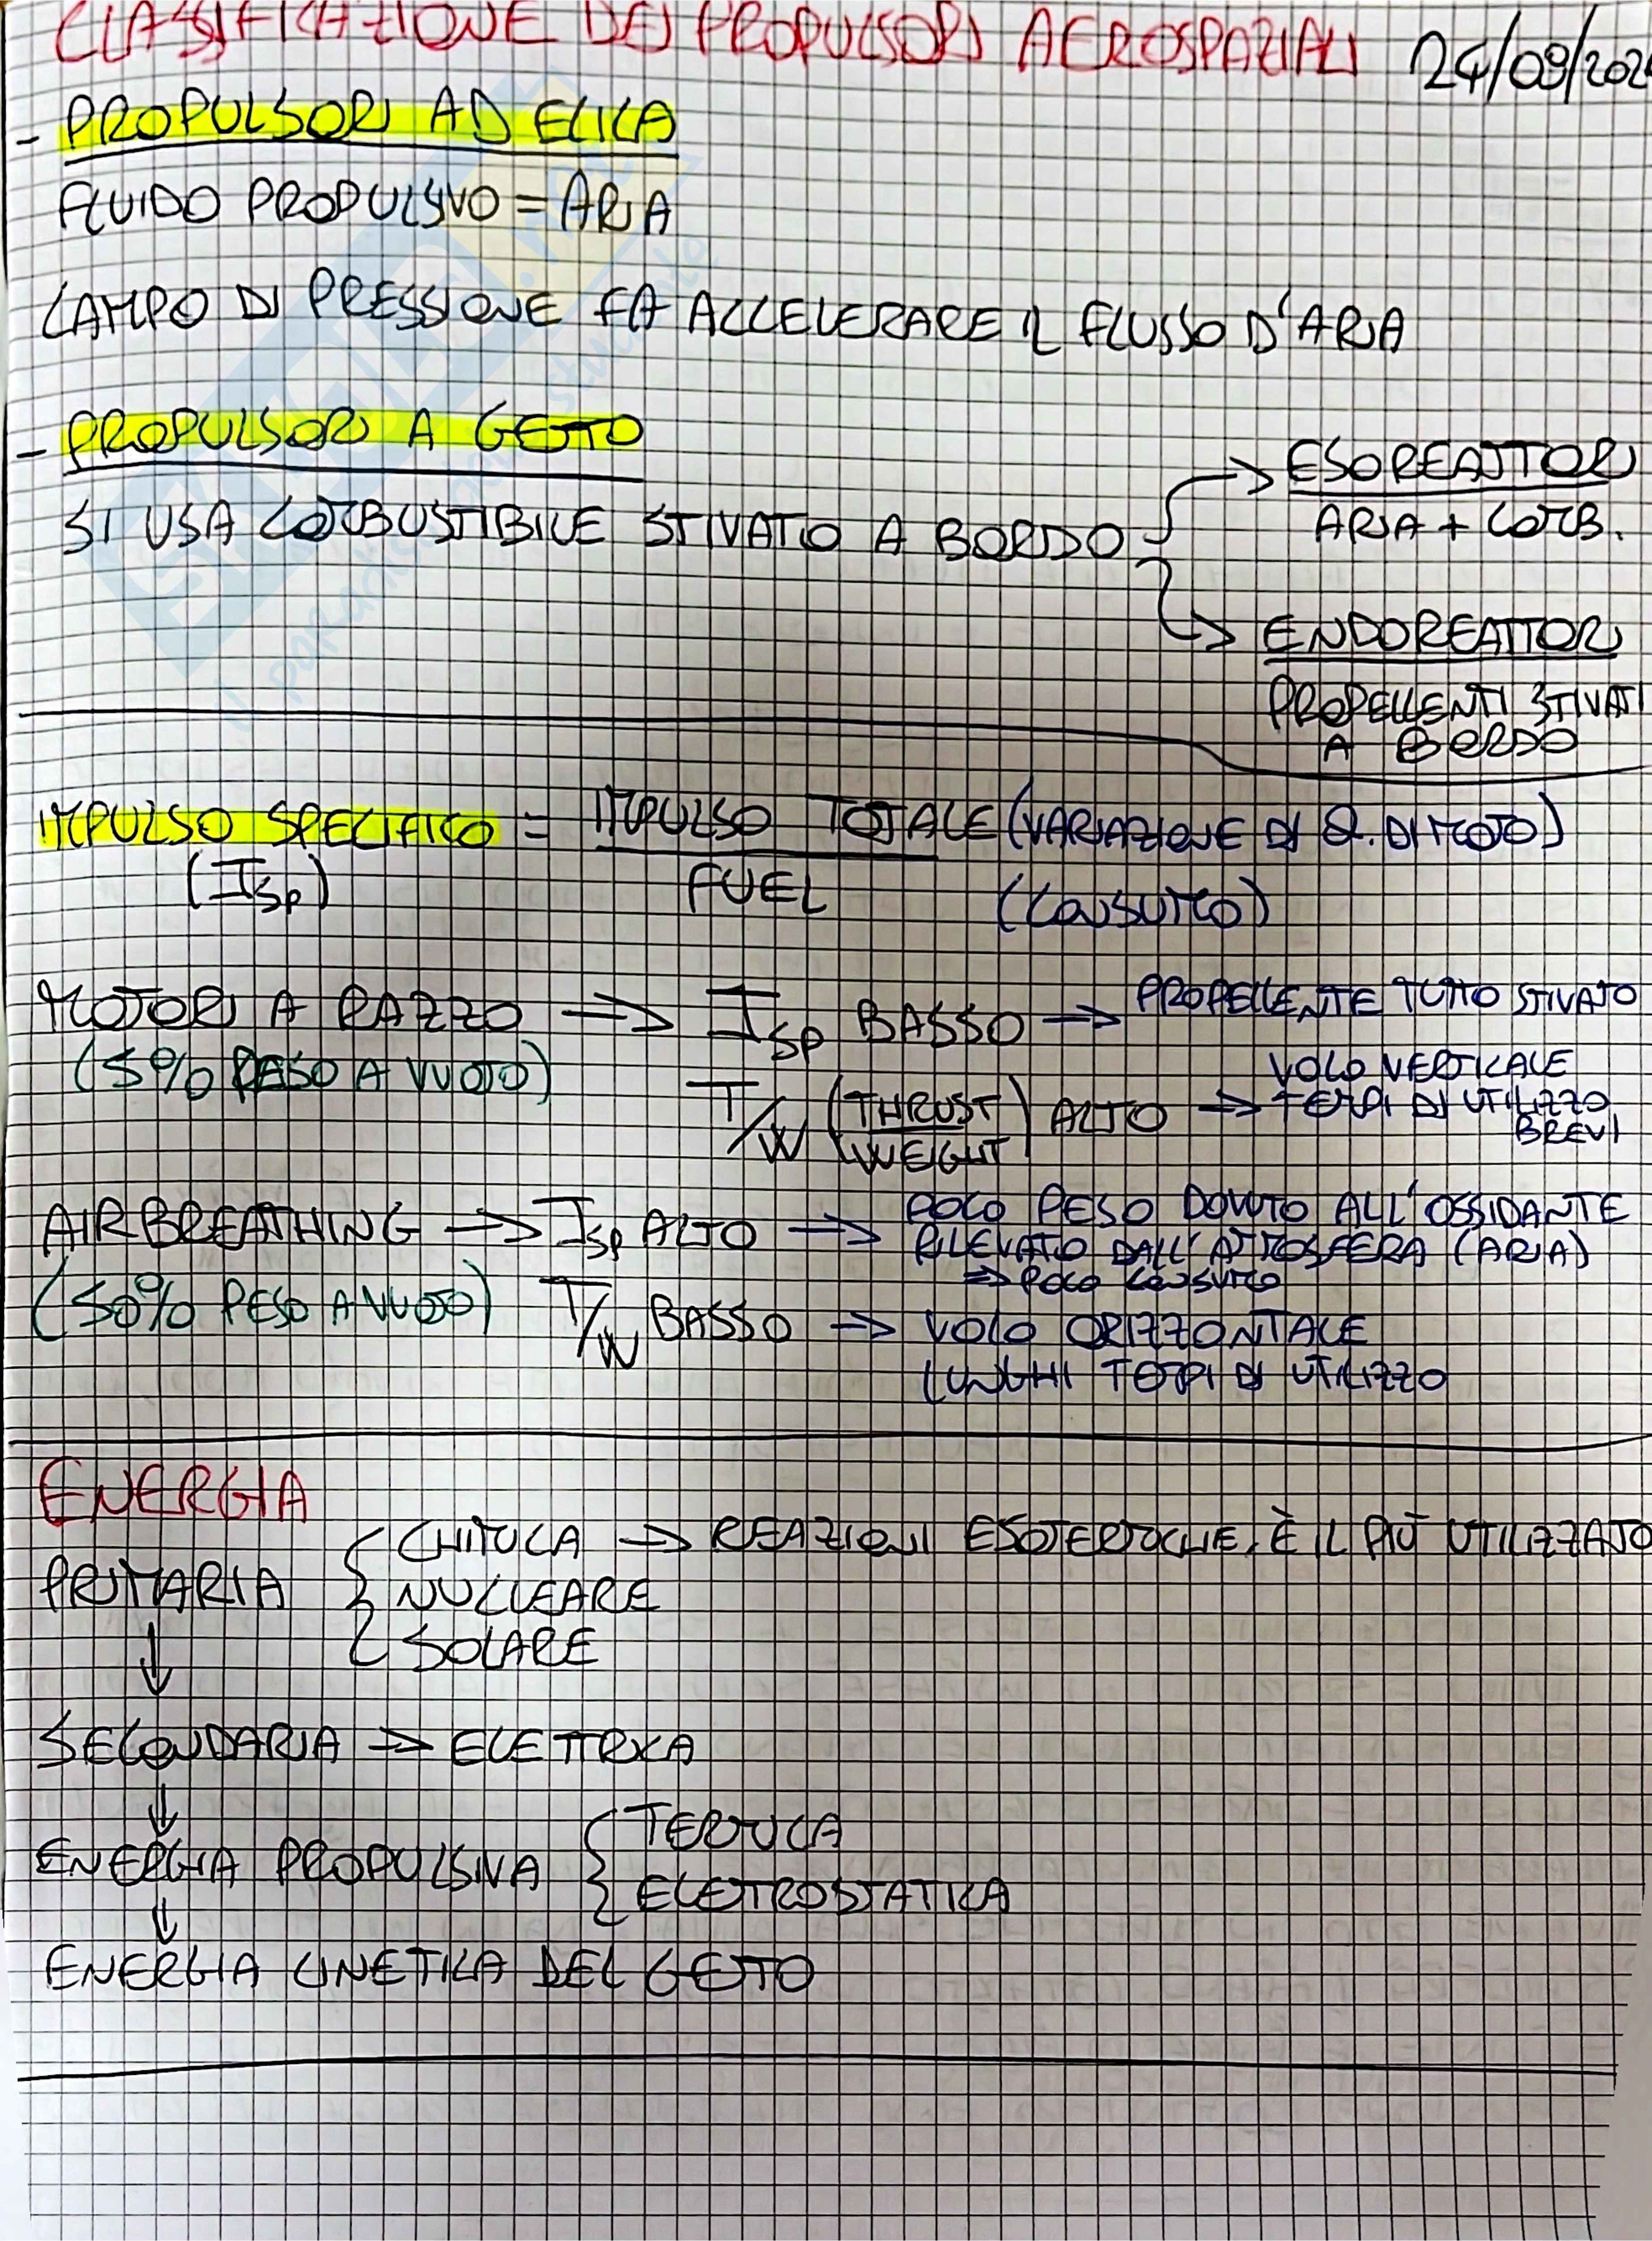 CLASSIFICAZIONE DEI PROPULSORI AEROSPAZIALI 24/09/202
- PROPULSORI AD ELICA
FLUIDO PROPULSIVO = ARIA
CAMPO DI PRESSIONE FA ACCELERARE IL FLUSSO D'ARIA
- PROPULSORI A GETTO
SI USA COMBUSTIBILE STIVATO A BORDO
→ ESOREATTORI
ARIA + COMB.
→ ENDOREATTORI
PROPELLENTI STIVATI
A BORDO
IMPULSO SPECIFICO = IMPULSO TOTALE (VARIAZIONE DI Q. DI MOTO)
(Isp) FUEL (CONSUMO)
MOTORI A RAZZO ⇒ Isp BASSO → PROPELLENTE TUTTO STIVATO
(5% PESO A VUOTO)
T/W (THRUST/WEIGHT) ALTO → VOLO VERTICALE
TEMPI DI UTILIZZO
BREVI
AIRBREATHING → Isp ALTO → POCO PESO DOVUTO ALL'OSSIDANTE
RILEVATO DALL'ATMOSFERA (ARIA)
⇒ POCO CONSUMO
(50% PESO A VUOTO) T/W BASSO → VOLO ORIZZONTALE
LUNGHI TEMPI DI UTILIZZO
ENERGIA
PRIMARIA { CHIMICA → REAZIONI ESOTERMICHE, È IL PIÙ UTILIZZATO
NUCLEARE
SOLARE
↓
SECONDARIA → ELETTRICA
↓
ENERGIA PROPULSIVA { TERMICA
ELETTROSTATICA
↓
ENERGIA CINETICA DEL GETTO
SKUOLA.net
il paradiso dello studente